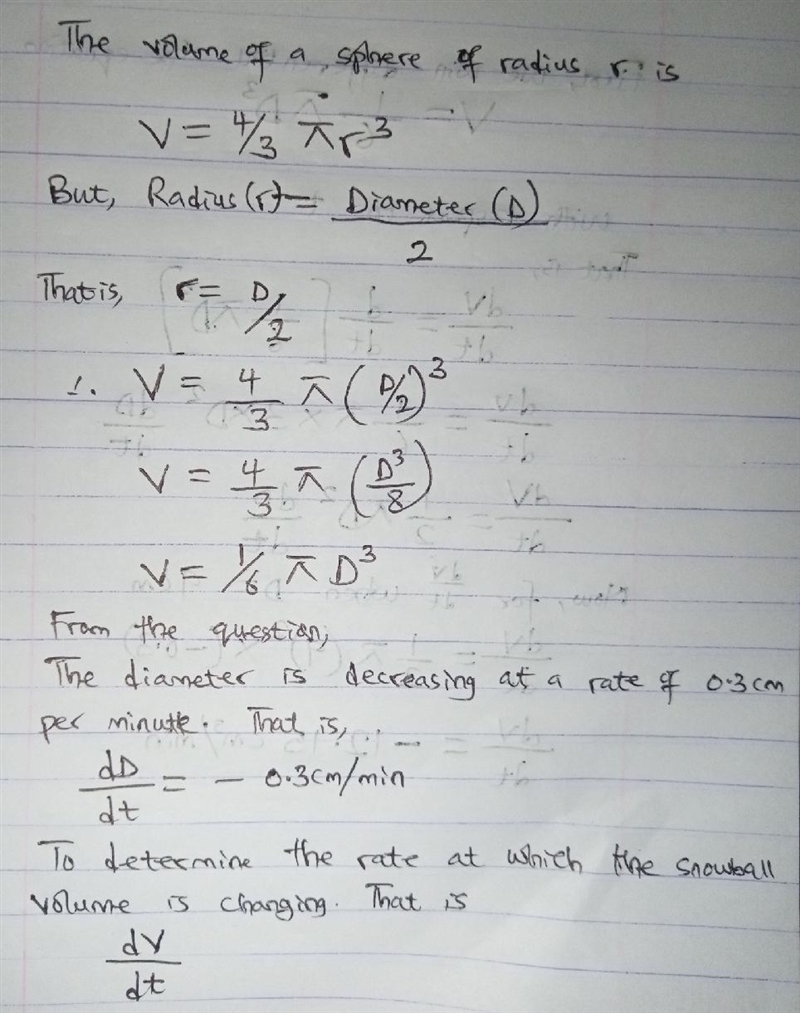 The volume of a sphere of radius r is
V = 4/3 πr³
But, Radius (r) = Diameter (D)
2
That is, r = D/2
∴ V = 4/3 π (D/2)³
V = 4/3 π (D³/8)
V = 1/6 π D³
From the question,
The diameter is decreasing at a rate of 0.3cm
per minute. That is,
dD/dt = - 0.3cm/min
To determine the rate at which the snowball
volume is changing. That is
dV/dt